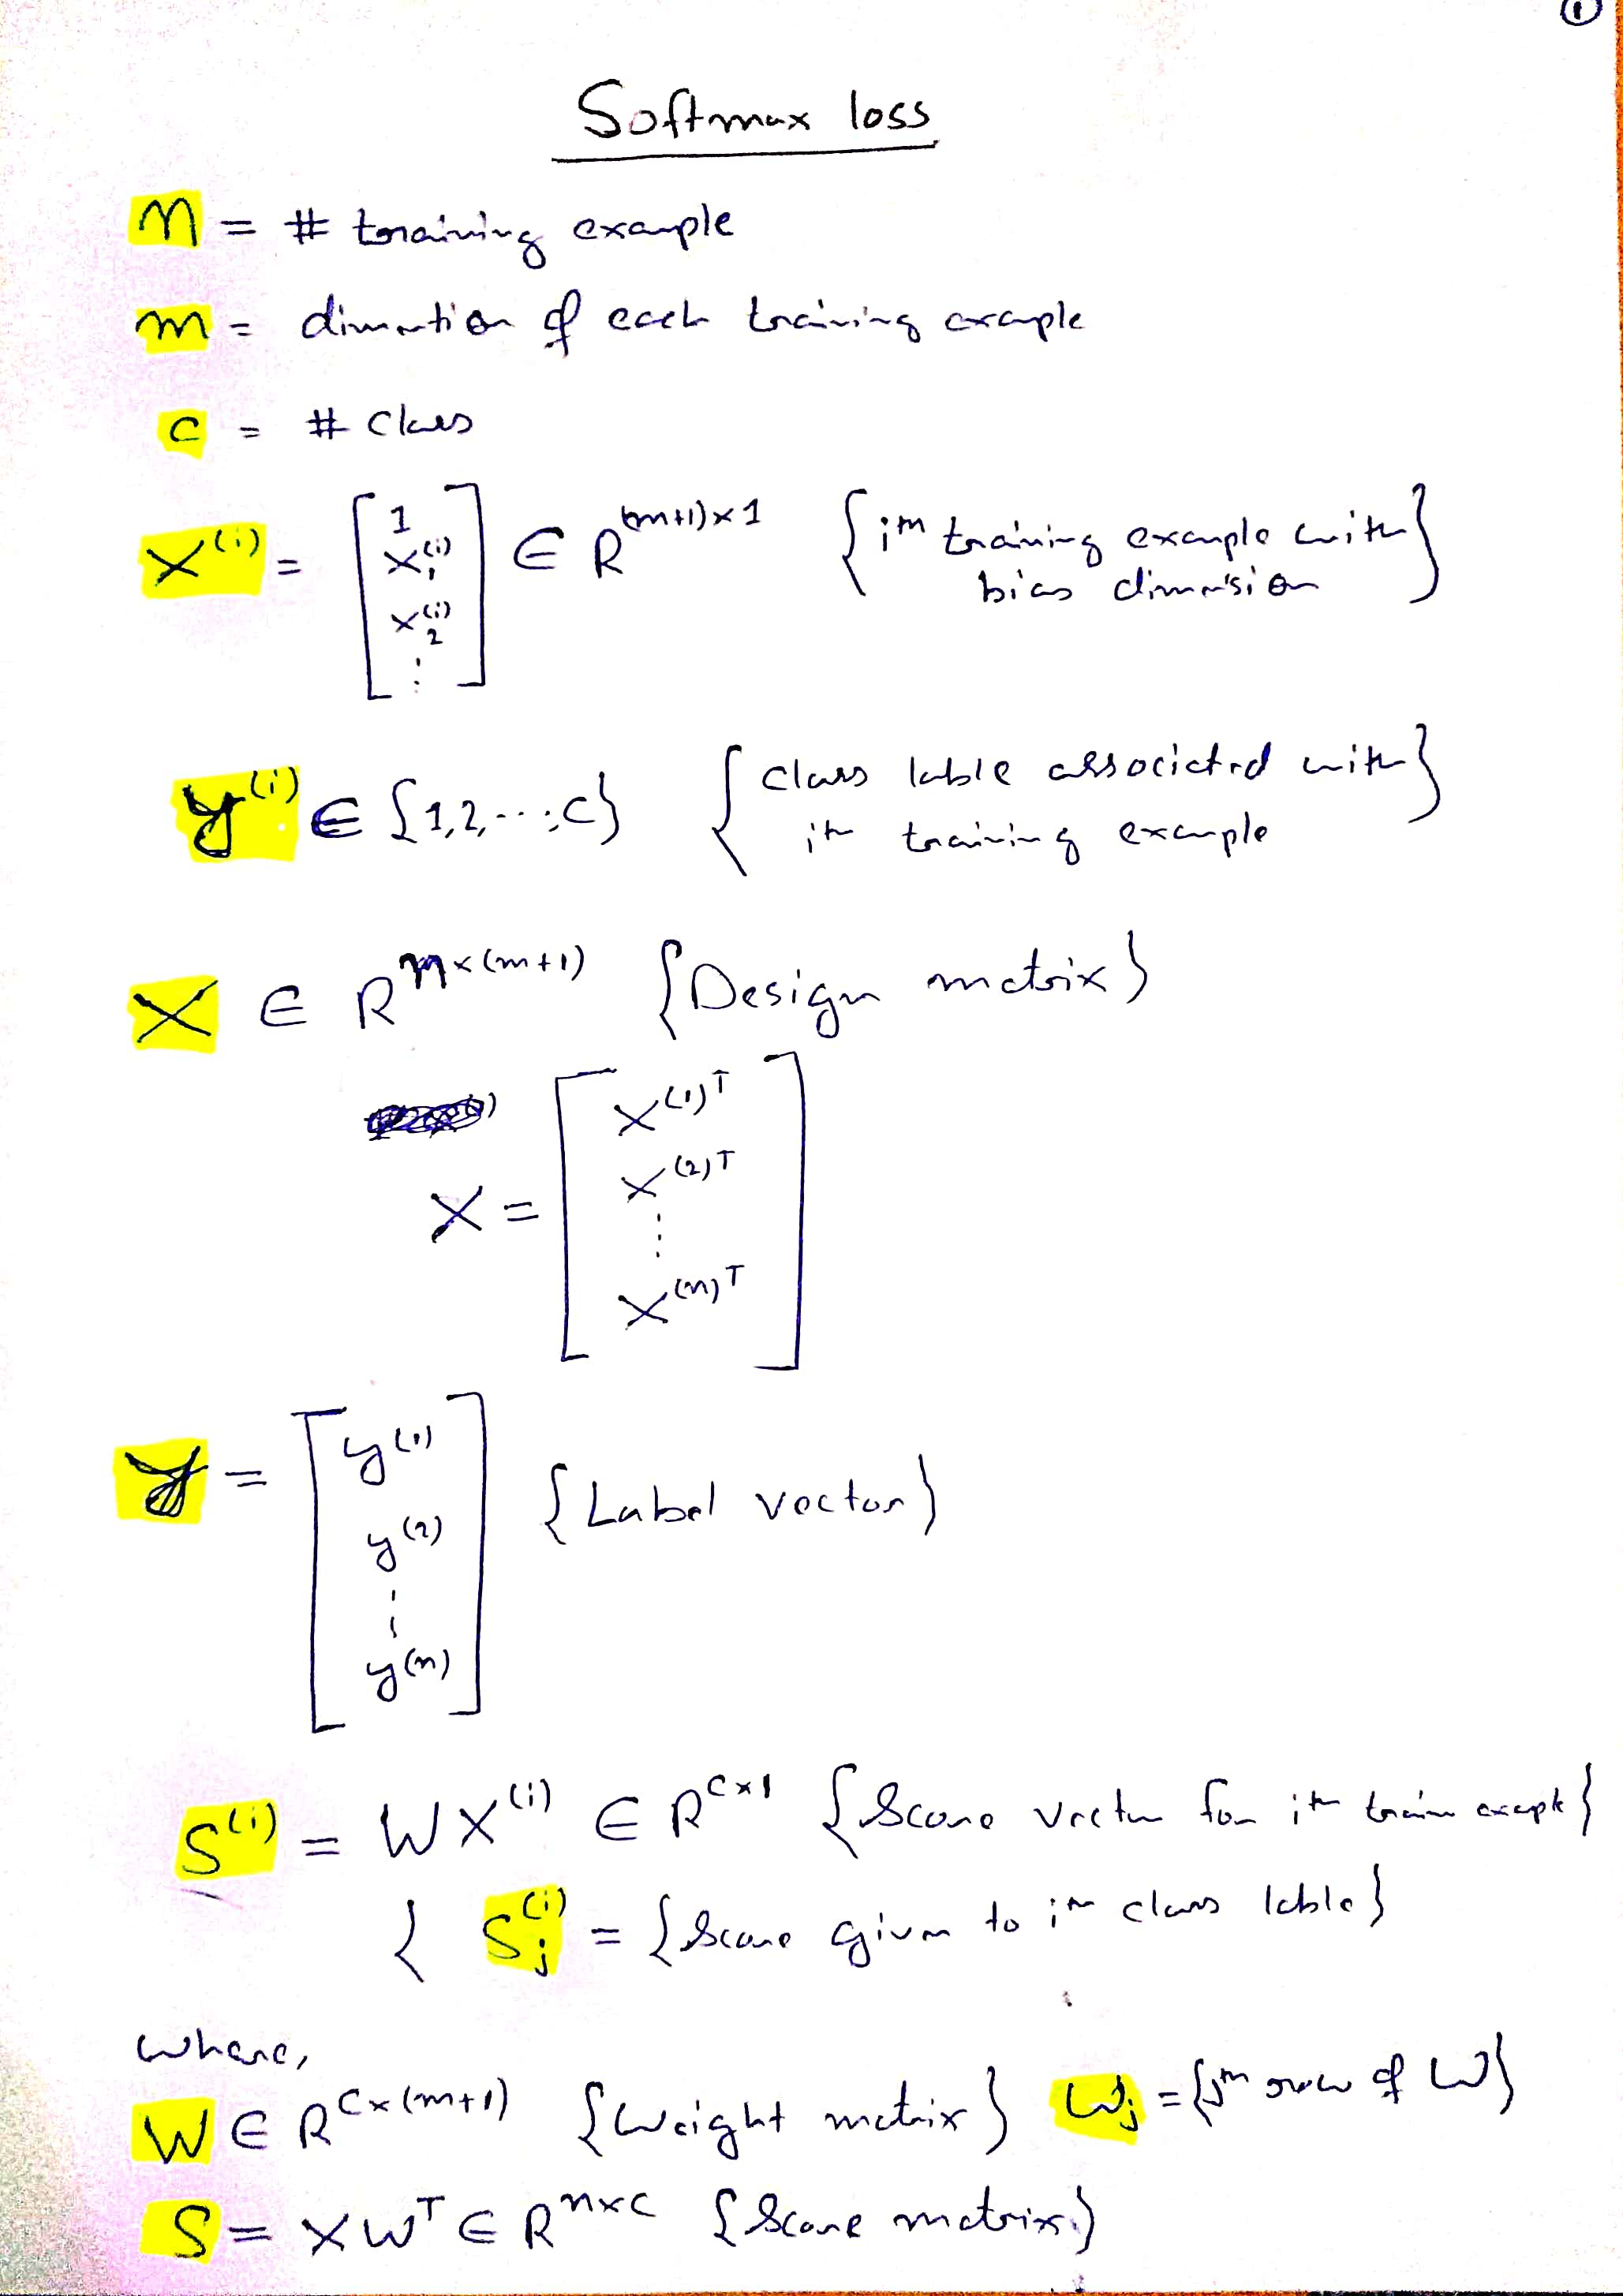 ①
Softmax loss
n = # training example
m = dimention of each training example
C = # Class
X⁽ⁱ⁾ = [1 x₁⁽ⁱ⁾ x₂⁽ⁱ⁾ ⋮] ∈ R⁽ᵐ⁺¹⁾ˣ¹ {ith training example with
bias dimension}
y⁽ⁱ⁾ ∈ {1,2,...,C} {class lable associated with
ith training example}
X ∈ Rⁿˣ⁽ᵐ⁺¹⁾ {Design matrix}
X = [X⁽¹⁾ᵀ X⁽²⁾ᵀ ⋮ X⁽ⁿ⁾ᵀ]
y = [y⁽¹⁾ y⁽²⁾ ⋮ y⁽ⁿ⁾] {Label vector}
S⁽ⁱ⁾ = WX⁽ⁱ⁾ ∈ R^(C×1) {Score vector for ith train exaple}
{ Sⱼ⁽ⁱ⁾ = {Score given to jth class lable}
where,
W ∈ R^(C×(m+1)) {Weight matrix} Wⱼ = {jth row of W}
S = XWᵀ ∈ R^(n×C) {Score matrix}